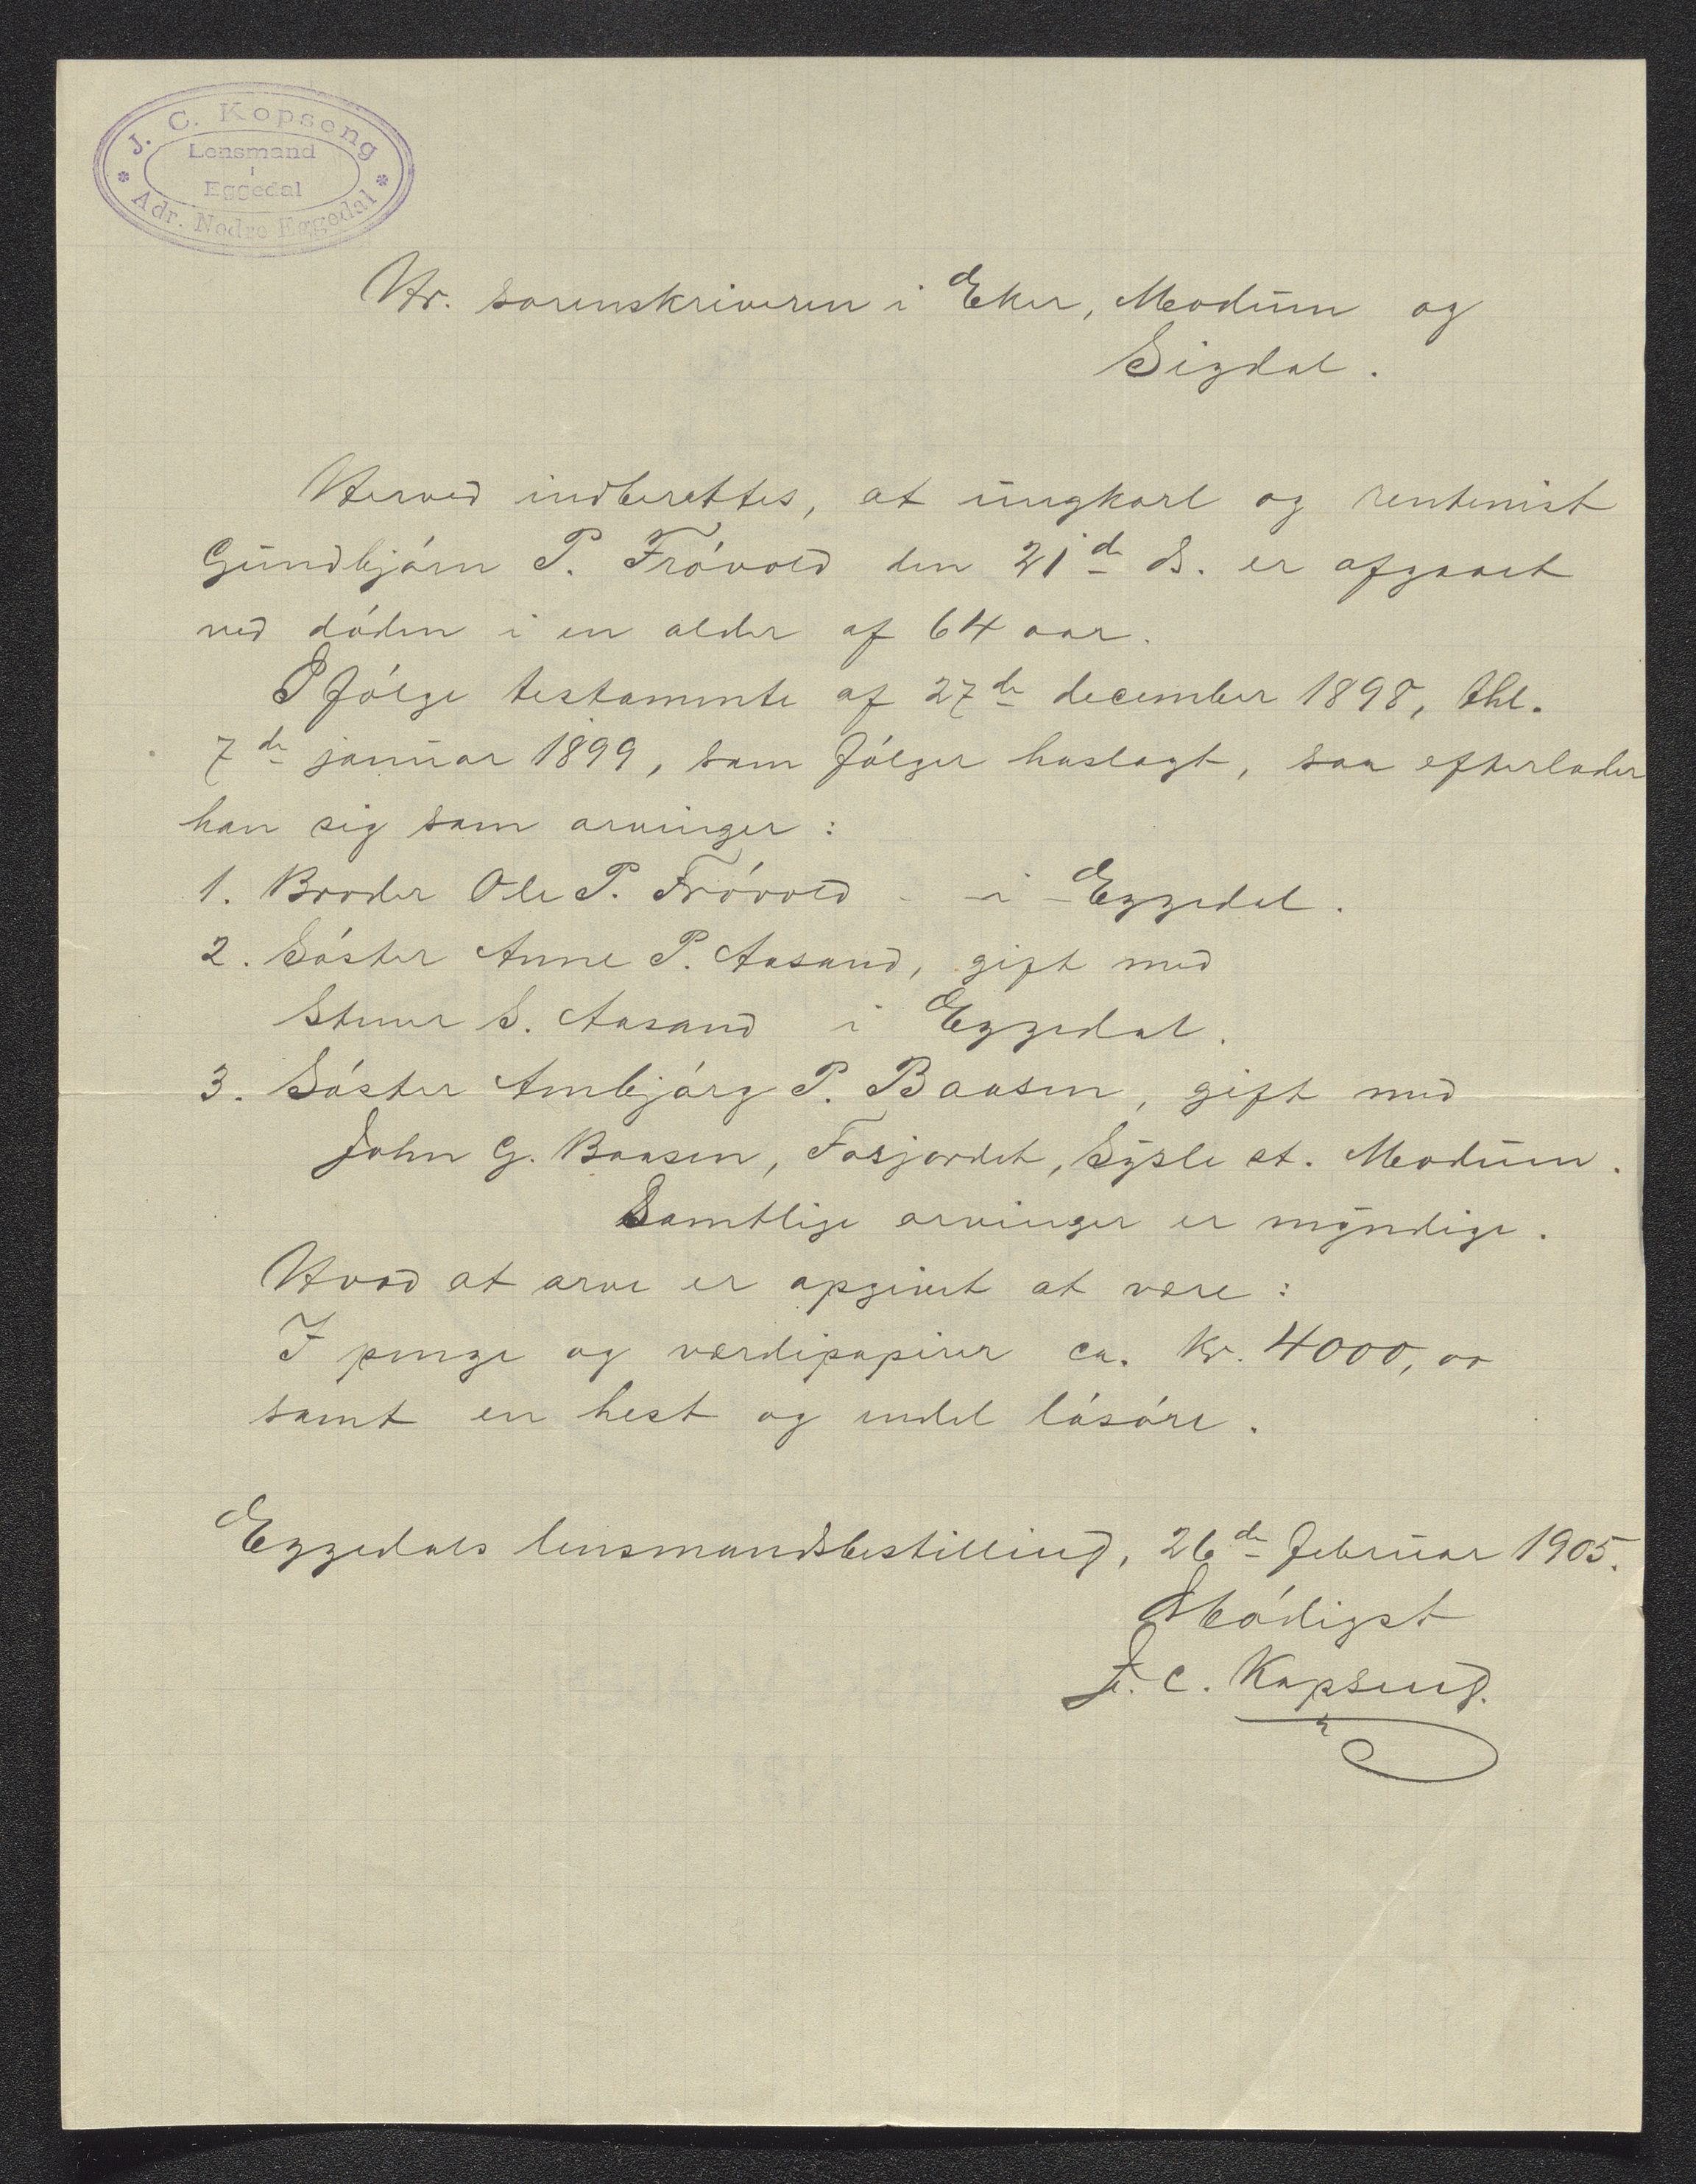 J. C. Kopseng
Lensmand
i
Eggedal
Adr. Nedre Eggedal
Hr. sorenskriveren i Eker, Modum og
Sigdal.
Herved indberettes, at ungkarl og rentenist
Gundbjórn P. Fróvold den 21de ds. er afgaaet
ved dóden i en alder af 64 aar.
I fólge testamente af 27de december 1898, thl.
7de januar 1899, som fólger hoslagt, saa efterlader
han sig som arvinger:
1. Broder Ole P. Fróvold - - i - Eggedal.
2. Sóster Anne P. Aasand, gift med
Stener S. Aasand i Eggedal.
3. Sóster Ambjórg P. Baasen, gift med
John G. Baasen, Fosjordet, Sysle st. Modum.
Samtlige arvinger er myndige.
Hvad at arve er opgivet at være:
I penge og værdipapirer ca. kr. 4000,00
samt en hest og endel lósóre.
Eggedals lensmandsbestilling, 26de februar 1905.
Ærbódigst
J. C. Kopseng.